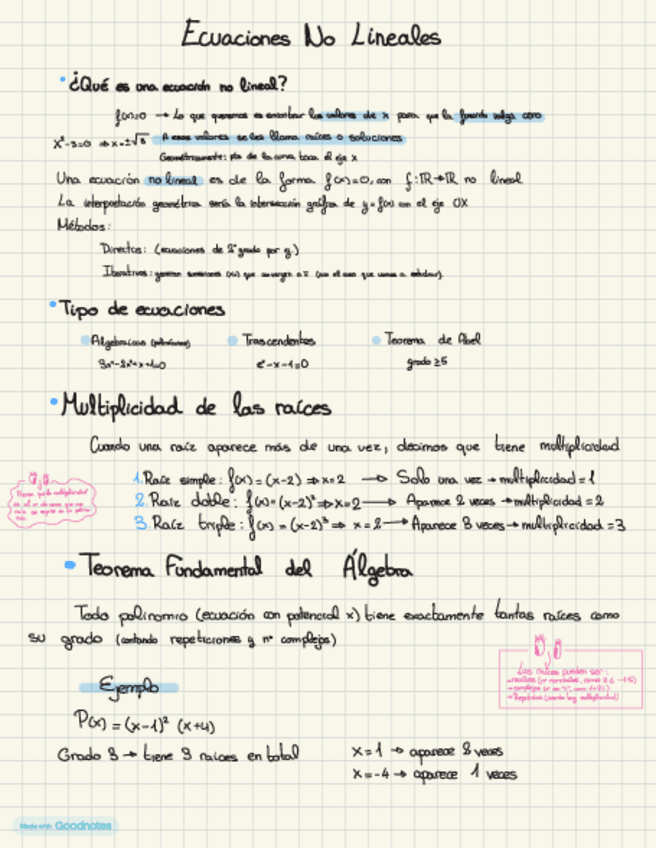 Ecuaciones No Lineales
• ¿Qué es una ecuación no lineal?
f(x)=0 → Lo que queremos es encontrar los valores de x para que la función valga cero
x²-3=0 ⇒ x=±√3 A esos valores se les llama raíces o soluciones
Geométricamente: pto de la curva toca el eje x
Una ecuación no lineal es de la forma f(x)=0, con f: ℝ→ℝ no lineal
La interpretación geométrica sería la intersección gráfica de y=f(x) con el eje OX
Métodos:
Directos: (ecuaciones de 2º grado por ej.)
Iterativos: generan sucesiones (xn) que convergen a x̄ (son el caso que vamos a estudiar)
• Tipo de ecuaciones
Algebraicas (polinómicas) Trascendentes Teorema de Abel
e^x-x-1=0 grado ≥5
• Multiplicidad de las raíces
Cuando una raíz aparece más de una vez, decimos que tiene multiplicidad
1. Raíz simple: f(x)=(x-2) ⇒ x=2 → Solo una vez → multiplicidad=1
2. Raíz doble: f(x)=(x-2)² ⇒ x=2 → Aparece 2 veces → multiplicidad=2
3. Raíz triple: f(x)=(x-2)³ ⇒ x=2 → Aparece 3 veces → multiplicidad=3
• Teorema Fundamental del Álgebra
Todo polinomio (ecuación con potencial x) tiene exactamente tantas raíces como
su grado (contando repeticiones y nº complejos)
Las raíces pueden ser:
Ejemplo
P(x)=(x-1)² (x+4)
Grado 3 → tiene 3 raíces en total
x=1 → aparece 2 veces
x=-4 → aparece 1 veces
Made with Goodnotes